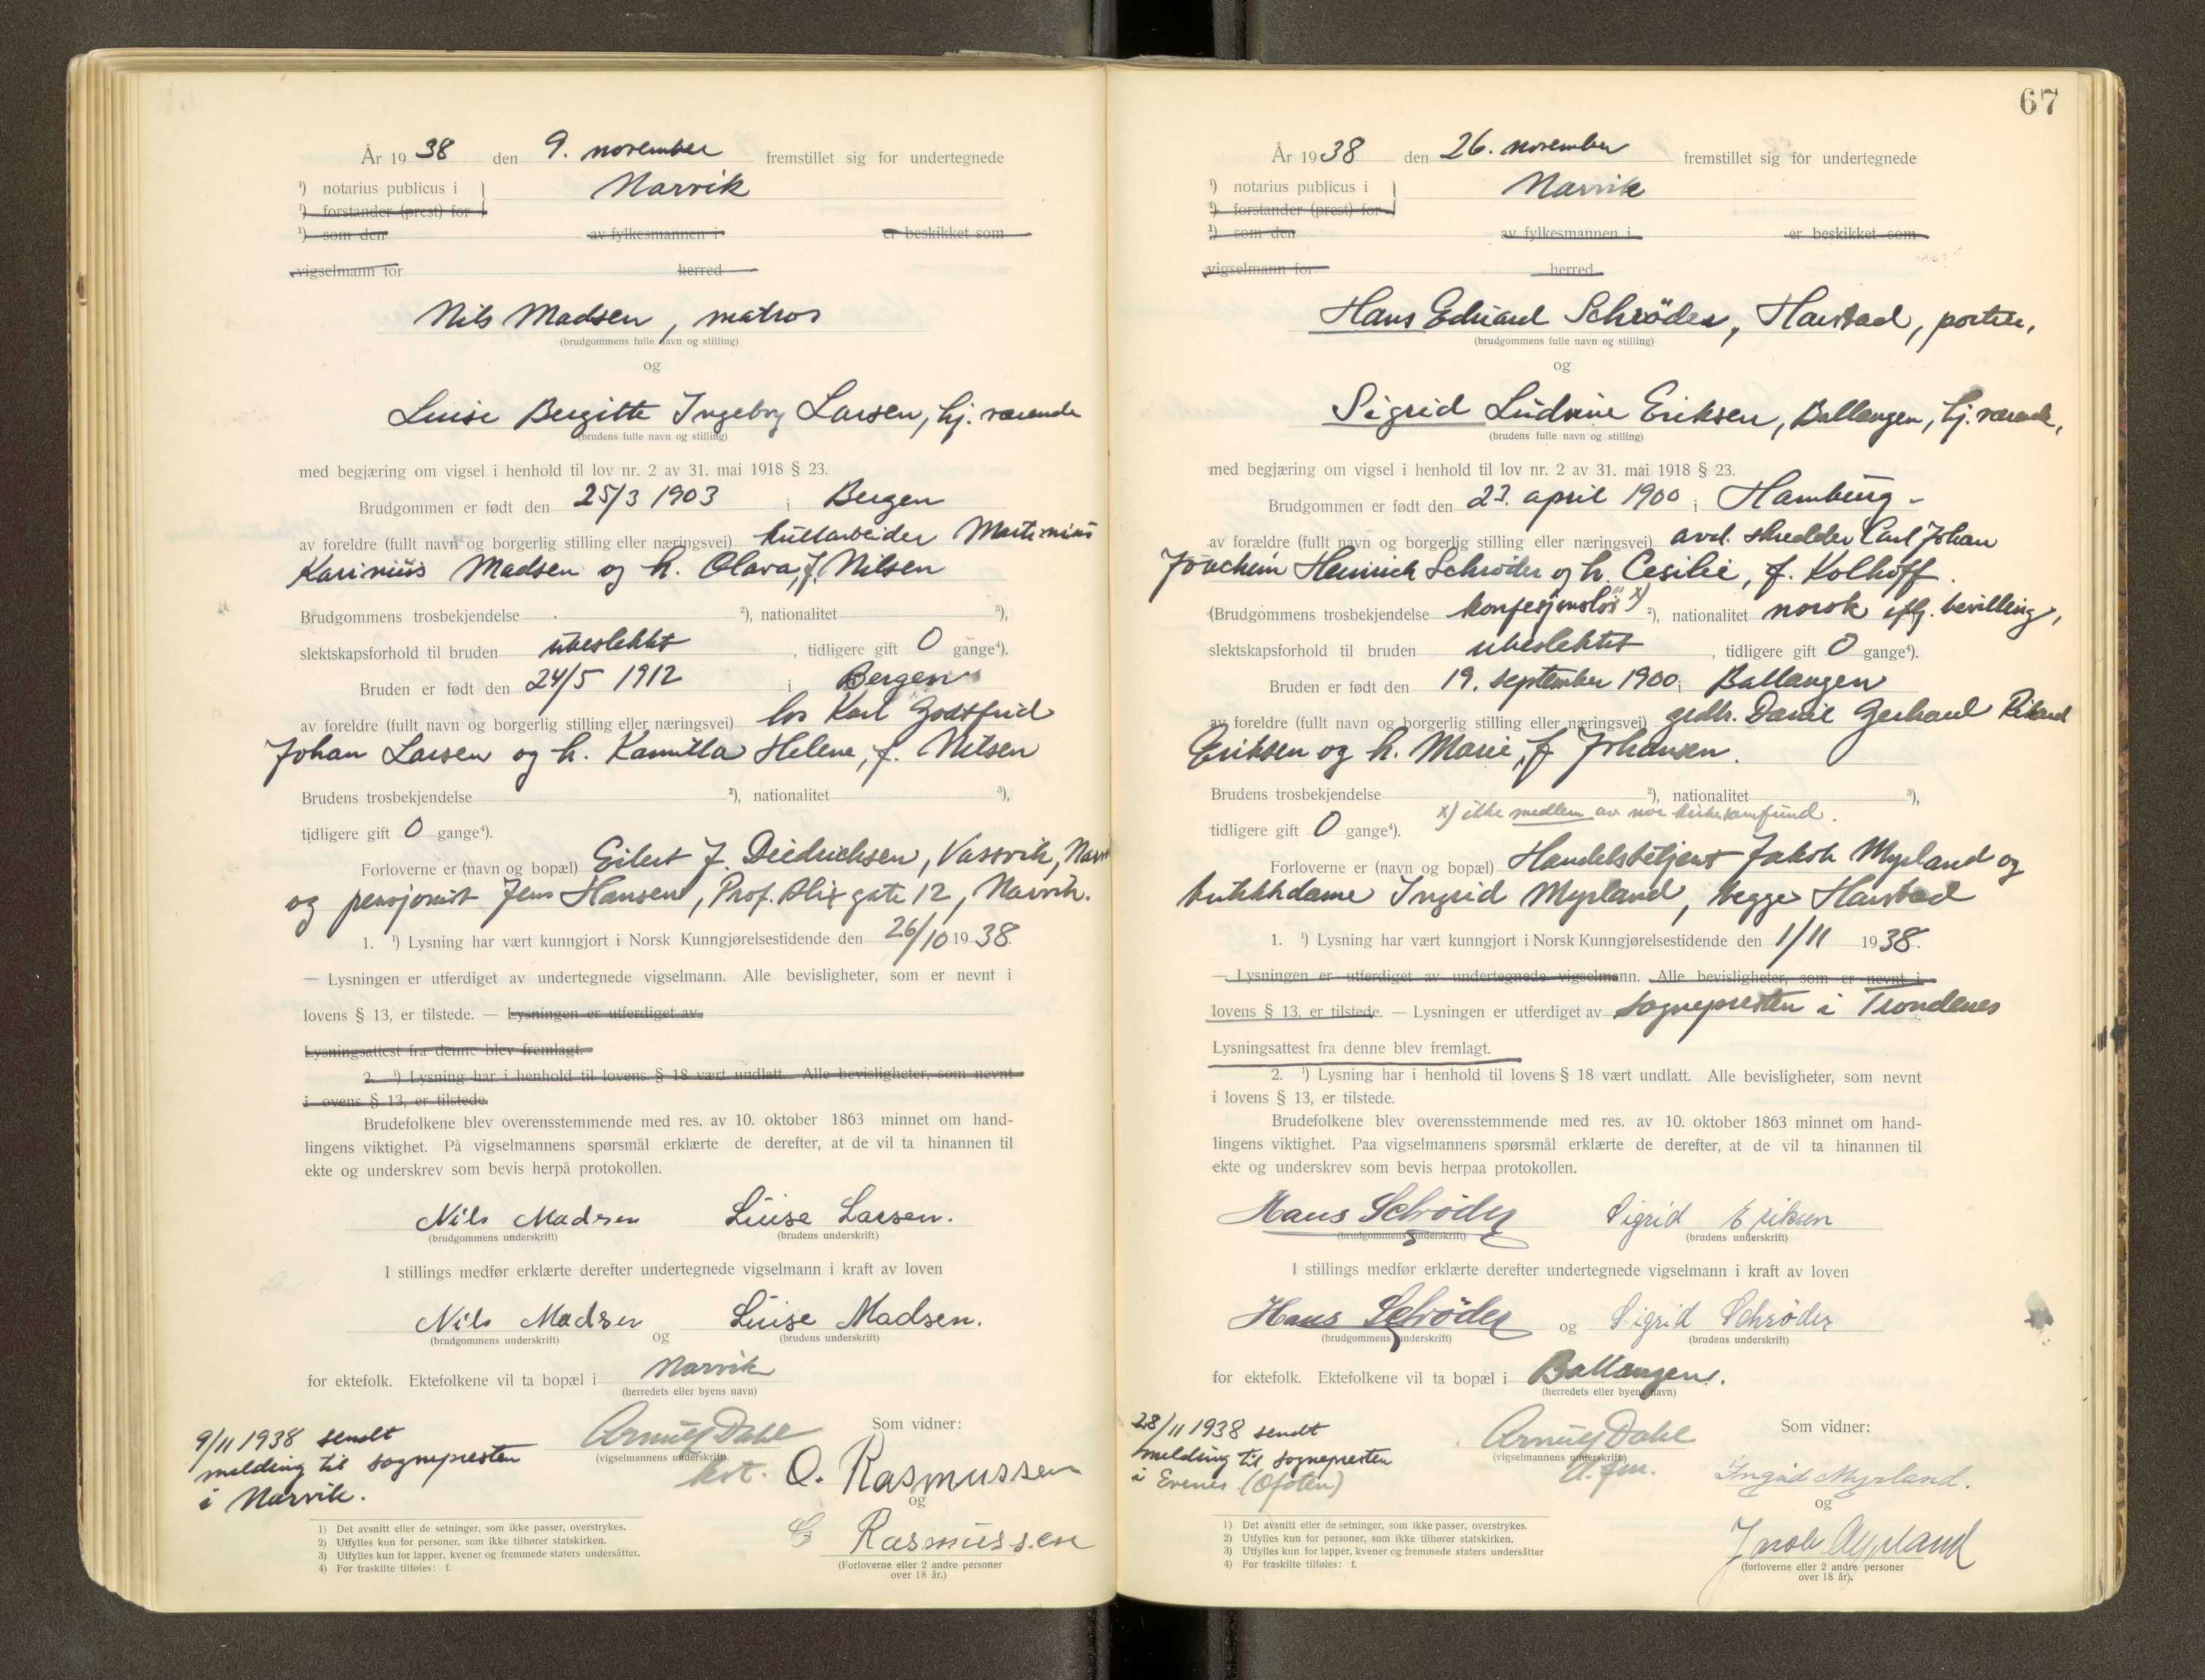 År 1938 den 9. november fremstillet sig for undertegnede
¹) notarius publicus i Narvik
¹) forstander (prest) for
¹) som den av fylkesmannen i er beskikket som
vigselmann for herred
Nils Madsen, matros
(brudgommens fulle navn og stilling)
og
Luise Bergitte Ingeborg Larsen, hj. værende
(brudens fulle navn og stilling)
med begjæring om vigsel i henhold til lov nr. 2 av 31. mai 1918 § 23.
Brudgommen er født den 25/3 1903 i Bergen
av foreldre (fullt navn og borgerlig stilling eller næringsvei) kullarbeider Martinius
Karinius Madsen og h. Olava, f. Nilsen
Brudgommens trosbekjendelse ²), nationalitet ³),
slektskapsforhold til bruden ubeslektet, tidligere gift 0 gange⁴).
Bruden er født den 24/5 1912 i Bergen
av foreldre (fullt navn og borgerlig stilling eller næringsvei) los Karl Godtfred
Johan Larsen og h. Kamilla Helene, f. Nilsen
Brudens trosbekjendelse ²), nationalitet ³),
tidligere gift 0 gange⁴).
Forloverne er (navn og bopæl) Eilert J. Diedrichsen, Vassvik, Narvik
og pensjonist Jens Hansen, Prof. Slix gate 12, Narvik.
1. ¹) Lysning har vært kunngjort i Norsk Kunngjørelsestidende den 26/10 1938.
— Lysningen er utferdiget av undertegnede vigselmann. Alle bevisligheter, som er nevnt i
lovens § 13, er tilstede. — Lysningen er utferdiget av
Lysningsattest fra denne blev fremlagt.
2. ¹) Lysning har i henhold til lovens § 18 vært undlatt. Alle bevisligheter, som nevnt
i ovens § 13, er tilstede.
Brudefolkene blev overensstemmende med res. av 10. oktober 1863 minnet om hand-
lingens viktighet. På vigselmannens spørsmål erklærte de derefter, at de vil ta hinannen til
ekte og underskrev som bevis herpå protokollen.
Nils Madsen Luise Larsen.
(brudgommens underskrift) (brudens underskrift)
I stillings medfør erklærte derefter undertegnede vigselmann i kraft av loven
Nils Madsen og Luise Madsen.
(brudgommens underskrift) (brudens underskrift)
for ektefolk. Ektefolkene vil ta bopæl i Narvik
(herredets eller byens navn)
9/11 1938 sendt
melding til sognepresten
i Narvik.
Arnulf Dahl
(vigselmannens underskrift)
kst.
Som vidner:
O. Rasmussen
og
Rasmussen
(Forloverne eller 2 andre personer
over 18 år.)
1) Det avsnitt eller de setninger, som ikke passer, overstrykes.
2) Utfylles kun for personer, som ikke tilhører statskirken.
3) Utfylles kun for lapper, kvener og fremmede staters undersåtter.
4) For fraskilte tilføies: f.
67
År 1938 den 26. november fremstillet sig for undertegnede
¹) notarius publicus i Narvik
¹) forstander (prest) for
¹) som den av fylkesmannen i er beskikket som
vigselmann for herred
Hans Eduard Schröder, Harstad, portier,
(brudgommens fulle navn og stilling)
og
Sigrid Ludvine Eriksen, Ballangen, hj. værende,
(brudens fulle navn og stilling)
med begjæring om vigsel i henhold til lov nr. 2 av 31. mai 1918 § 23.
Brudgommen er født den 23. april 1900 i Hamburg
av forældre (fullt navn og borgerlig stilling eller næringsvei) avd. skredder Carl Johan
Joachim Heinrich Schröder og h. Cesilie, f. Kolhoff.
(Brudgommens trosbekjendelse konfesjonsløs x) ²), nationalitet norsk iflg. bevilling,
slektskapsforhold til bruden ubeslektet, tidligere gift 0 gange⁴).
Bruden er født den 19. september 1900 i Ballangen
av foreldre (fullt navn og borgerlig stilling eller næringsvei) grdbr. Gerhard Rikard
Eriksen og h. Marie, f. Johansen.
Brudens trosbekjendelse ²), nationalitet ³),
x) ikke medlem av noe kirkesamfund.
tidligere gift 0 gange⁴).
Forloverne er (navn og bopæl) Handelsbetjent Jakob Myrland og
butikkdame Ingrid Myrland, begge Harstad
1. ¹) Lysning har vært kunngjort i Norsk Kunngjørelsestidende den 1/11 1938.
— Lysningen er utferdiget av undertegnede vigselmann. Alle bevisligheter, som er nevnt i
lovens § 13, er tilstede. — Lysningen er utferdiget av sognepresten i Trondenes
Lysningsattest fra denne blev fremlagt.
2. ¹) Lysning har i henhold til lovens § 18 vært undlatt. Alle bevisligheter, som nevnt
i lovens § 13, er tilstede.
Brudefolkene blev overensstemmende med res. av 10. oktober 1863 minnet om hand-
lingens viktighet. Paa vigselmannens spørsmål erklærte de derefter, at de vil ta hinannen til
ekte og underskrev som bevis herpaa protokollen.
Hans Schröder Sigrid Eriksen
(brudgommens underskrift) (brudens underskrift)
I stillings medfør erklærte derefter undertegnede vigselmann i kraft av loven
Hans Schröder og Sigrid Schrøder
(brudgommens underskrift) (brudens underskrift)
for ektefolk. Ektefolkene vil ta bopæl i Ballangen.
(herredets eller byens navn)
28/11 1938 sendt
melding til sognepresten
i Evenes (Ofoten)
Arnulf Dahl
(vigselmannens underskrift)
Som vidner:
Ingrid Myrland.
og
Jacob Myrland
(forloverne eller 2 andre personer
over 18 år).
1) Det avsnitt eller de setninger, som ikke passer, overstrykes.
2) Utfylles kun for personer, som ikke tilhører statskirken.
3) Utfylles kun for lapper, kvener og fremmede staters undersåtter
4) For fraskilte tilføies: f.